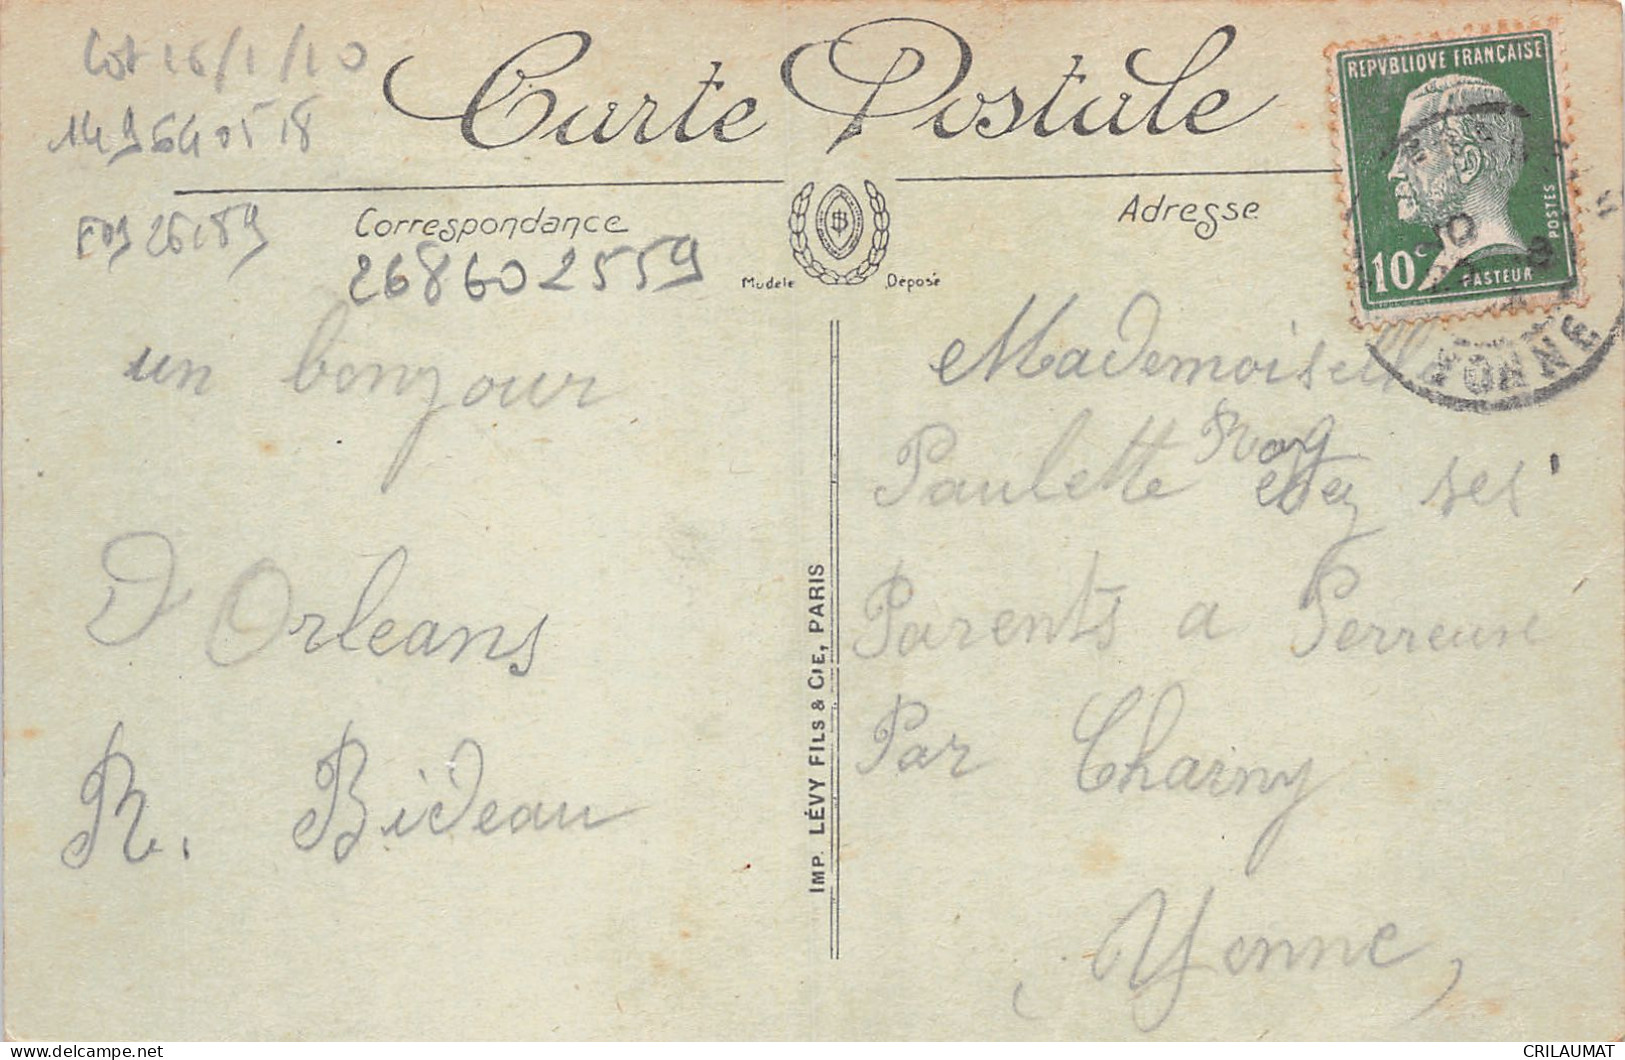 Lot 16/1/10
1495640518
26860 2559
Carte Postale
Correspondance
Adresse
Modèle Déposé
REPVBLIQVE FRANÇAISE
POSTES
10c PASTEUR
YONNE
un bonjour
D'Orleans
R. Bideau
IMP. LÉVY FILS & CIE, PARIS
Mademoiselle
Paulette chez ses
Parents a Perreuse
Par Charny
Yonne
CRILAUMAT